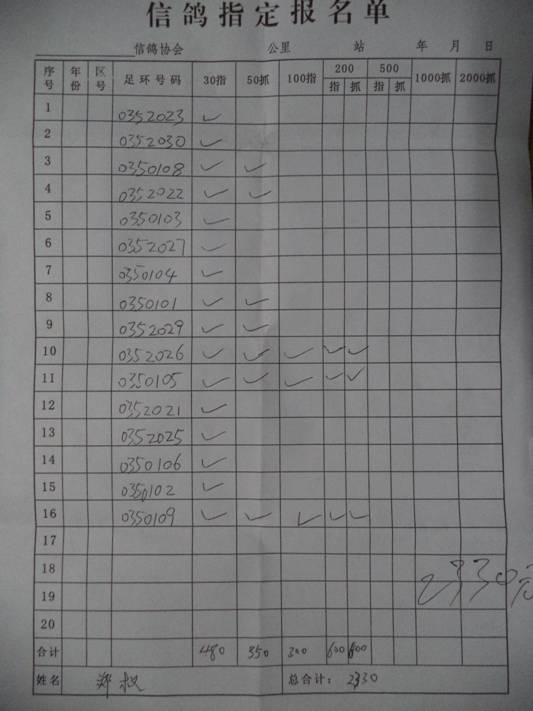 信鸽指定报名单
信鸽协会 公里 站 年 月 日
序号 年份 区号 足环号码 30指 50抓 100指 200 500 1000抓 2000抓
指 抓 指 抓
1 0352023 ✓
2 0352030 ✓
3 0350108 ✓ ✓
4 0352022 ✓ ✓
5 0350103 ✓
6 0352027 ✓
7 0350104 ✓
8 0350101 ✓ ✓
9 0352029 ✓ ✓
10 0352026 ✓ ✓ ✓ ✓ ✓
11 0350105 ✓ ✓ ✓ ✓ ✓
12 0352021 ✓
13 0352025 ✓
14 0350106 ✓
15 0350102 ✓
16 0350109 ✓ ✓ ✓ ✓ ✓
17
18
2330元
19
20
合计 480 350 300 600 600
姓名 郑权 总合计: 2330